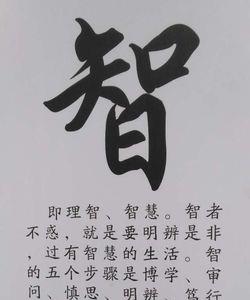 智
即理智、智慧。智者
不惑，就是要明辨是非
，过有智慧的生活。智
的五个步骤是博学、审
问、慎思、明辨、笃行